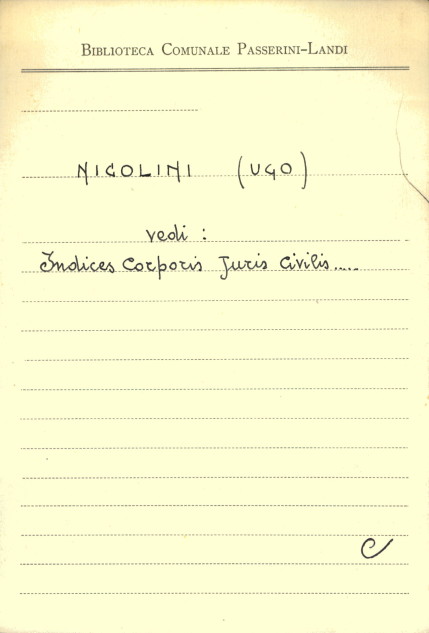 BIBLIOTECA COMUNALE PASSERINI-LANDI
NICOLINI (UGO)
vedi :
Indices Corporis Juris Civilis.....
C